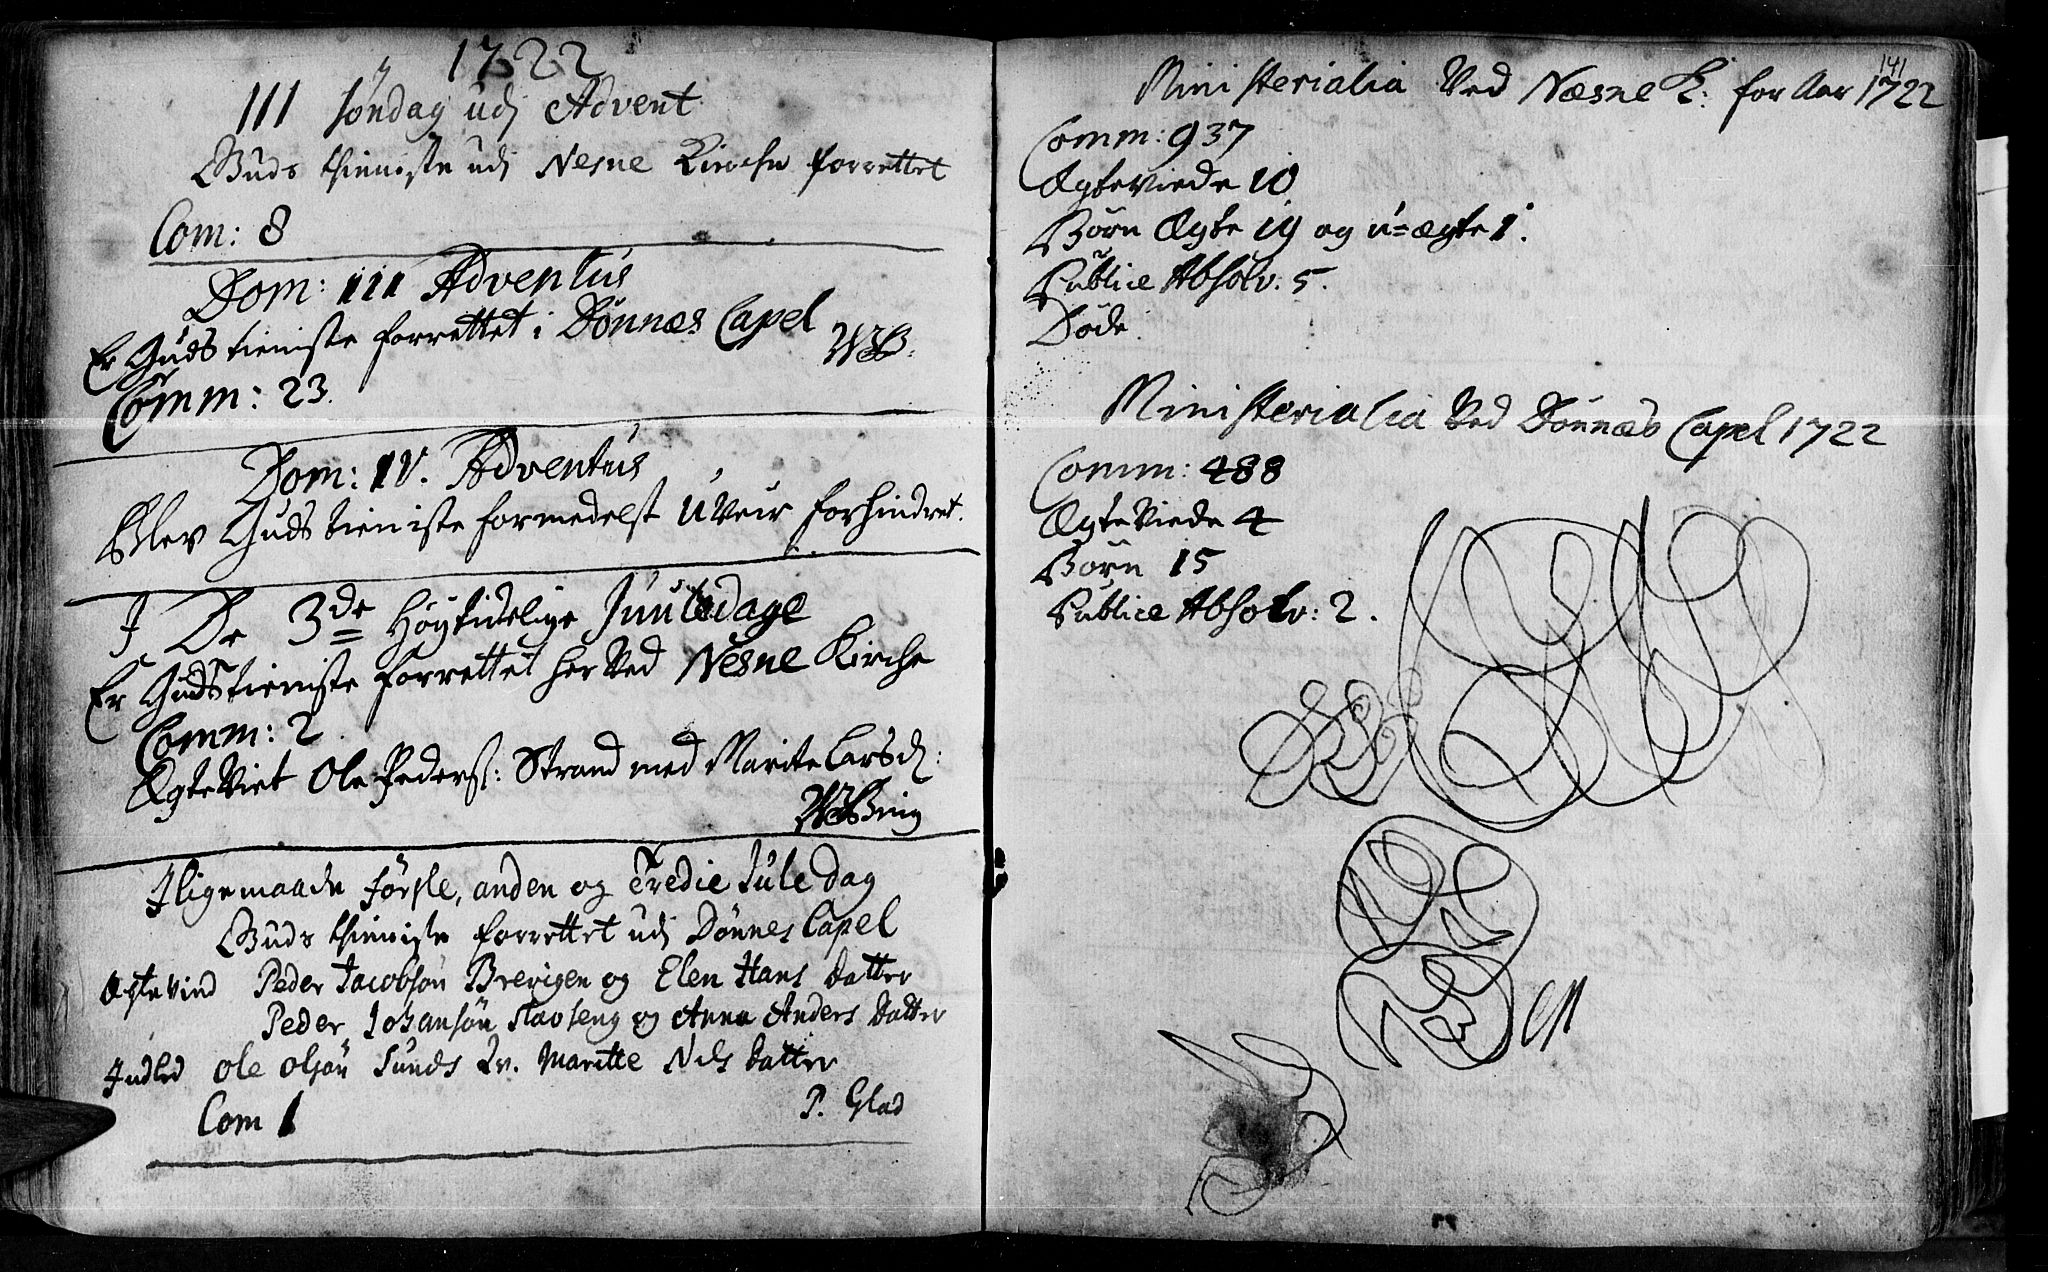 1722
III Söndag udj Advent
Guds thieniste udj Nesne Kirche forrettet
Com: 8
Dom: III Adventus
Er Guds tieniste forrettet i Dönnæs Capel
Comm: 23.
Dom: IV. Adventus
Blev Guds tieniste formedelst uveir forhindret.
J De 3de Høytidelige Juuledage
Er Guds tieniste forrettet her ved Nesne Kirche
Comm: 2.
Ægteviet Ole Peders: Strand med Marite Larsd:
Jligemaade förste, anden og Tredie Jule Dag
Guds thieniste forrettet udj Dönnes Capel
Ægtevied Peder Jacobsön Brevigen og Elen Hans datter
Peder Johansön og Anne Anders datter
Jndled Ole Olsön Sunds Qv. Maritte Nils datter
Com 1
P. Glad
141
Ministerialia Ved Næsne K: for Aar 1722
Comm: 937
Ægteviede 10
Börn Ægte 19 og u=ægte 1.
Publice Absolv: 5.
Döde
Ministerialia Ved Dönnæs Capel 1722
Comm: 488
Ægteviede 4
Börn 15
Publice Absolv: 2.